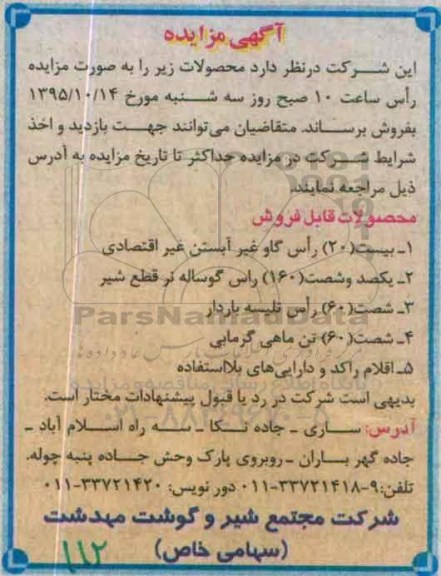 آگهی مزایده
این شرکت درنظر دارد محصولات زیر را به صورت مزایده
رأس ساعت ۱۰ صبح روز سه شنبه مورخ ۱۳۹۵/۱۰/۱۴
بفروش برساند. متقاضیان می‌توانند جهت بازدید و اخذ
شرایط شرکت در مزایده حداکثر تا تاریخ مزایده به آدرس
ذیل مراجعه نمایند.
محصولات قابل فروش
۱ـ بیست(۲۰) رأس گاو غیر آبستن غیر اقتصادی
۲ـ یکصد وشصت(۱۶۰) راس گوساله نر قطع شیر
۳ـ شصت(۶۰) رأس تلیسه باردار
۴ـ شصت(۶۰) تن ماهی گرمابی
ParsNamadData
۵ـ اقلام راکد و دارایی‌های بلااستفاده
بدیهی است شرکت در رد یا قبول پیشنهادات مختار است.
آدرس: ساری ـ جاده نکا ـ سه راه اسلام آباد ـ
جاده گهر باران ـ روبروی پارک وحش جاده پنبه چوله.
تلفن:۹-۳۳۷۲۱۴۱۸-۰۱۱ دور نویس: ۳۳۷۲۱۴۲۰-۰۱۱
شرکت مجتمع شیر و گوشت مهدشت
(سهامی خاص)
۱۱۲